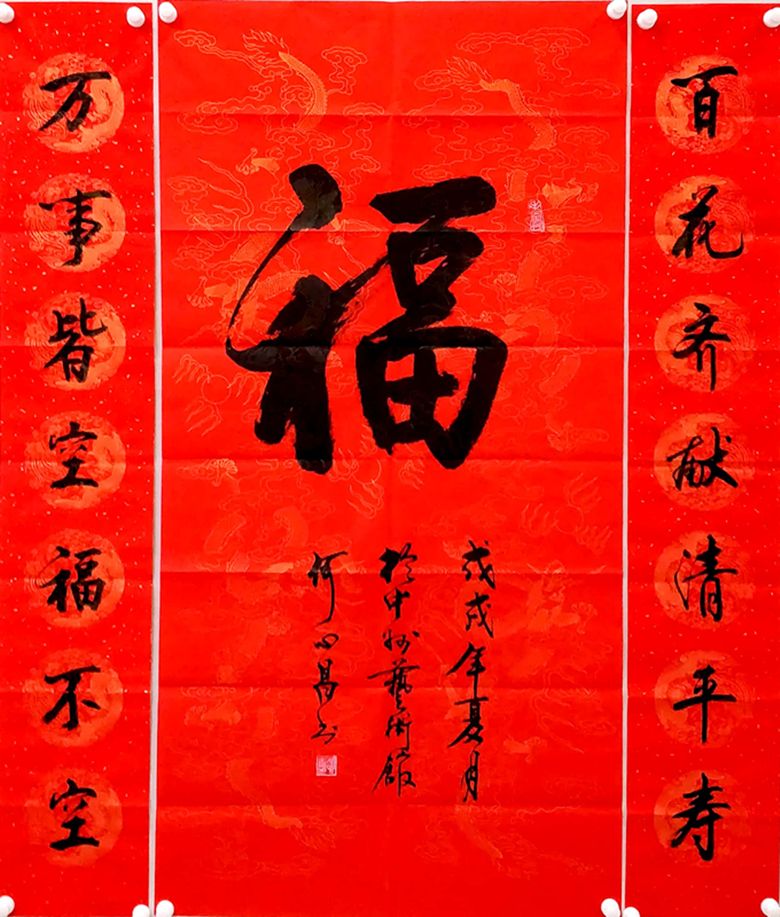 百花齐献清平寿
福
戊戌年夏月
於中州藝術館
何心昌书
万事皆空福不空